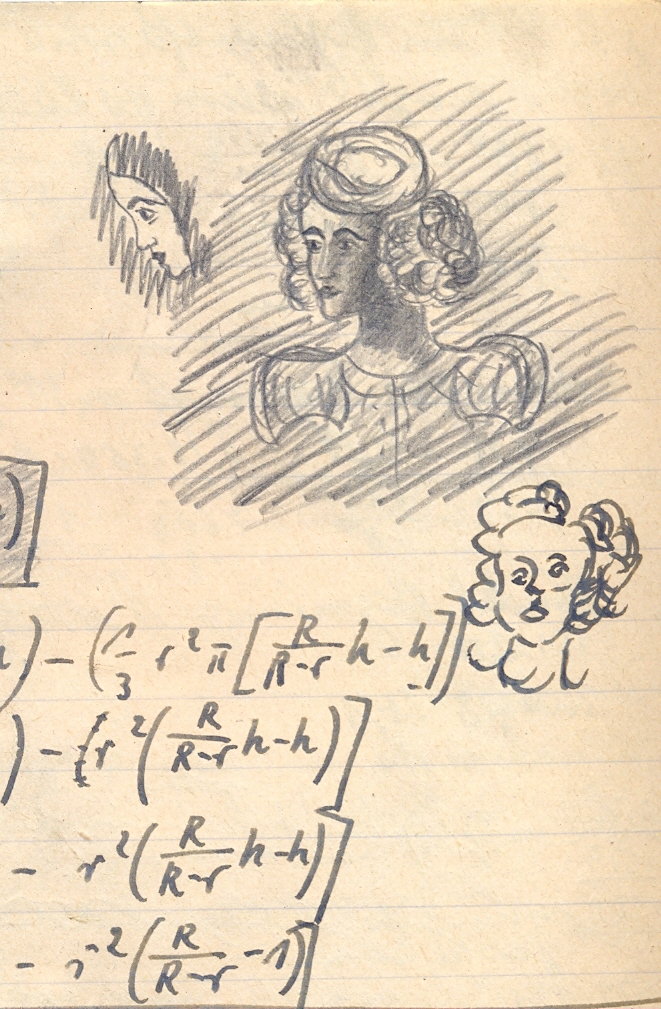 ) - (1/3 r²π [R/(R-r) h-h]]
) - {r² (R/(R-r) h-h)]
- r² (R/(R-r) h-h)]
- r² (R/(R-r) - 1)]